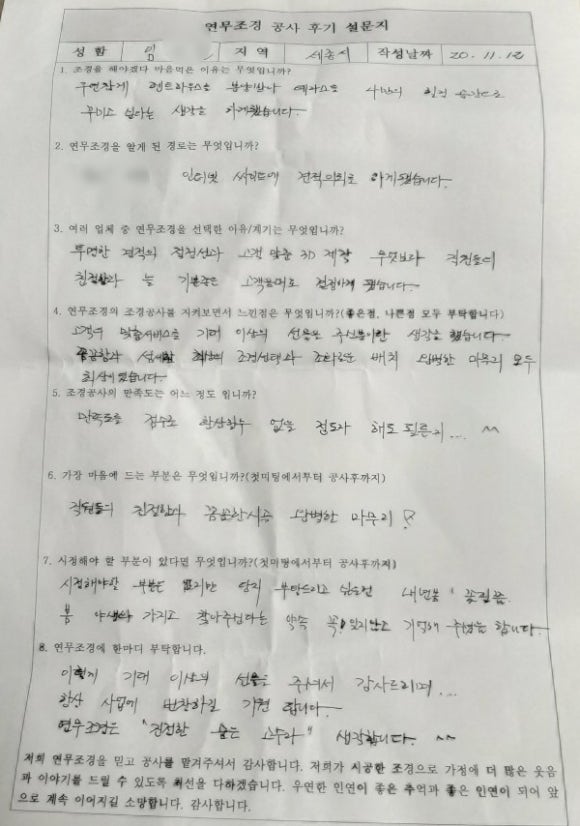 연무조경 공사 후기 설문지
성 함 임 지 역 세종시 작성날짜 20.11.18
1. 조경을 해야겠다 마음먹은 이유는 무엇입니까?
우연찮게 랜드하우스를 분양받아 예쁘게 나만의 힐링 공간으로
꾸미고 싶다는 생각을 가게했습니다.
2. 연무조경을 알게 된 경로는 무엇입니까?
인터넷 싸이트에 견적의뢰로 하게됐습니다.
3. 여러 업체 중 연무조경을 선택한 이유/계기는 무엇입니까?
투명한 견적의 적정선과 고객 맞춤 3D 제작 무엇보다 직원들의
친절함과 늘 고객응대로 결정하게 됐습니다.
4. 연무조경의 조경공사를 지켜보면서 느낀점은 무엇입니까?(좋은점, 나쁜점 모두 부탁합니다)
고객의 맞춤서비스를 기대 이상의 선물을 주신분이란 생각을 했습니다.
꼼꼼함과 섬세함 최상의 조경선택과 조화로운 배치 완벽한 마무리 모두
최상이었습니다.
5. 조경공사의 만족도는 어느 정도 입니까?
만족도를 점수로 환산할수 없을 정도라 해도 될른지... ^^
6. 가장 마음에 드는 부분은 무엇입니까?(첫미팅에서부터 공사후까지)
직원들의 친절함과 꼼꼼한시공 완벽한 마무리!
7. 시정해야 할 부분이 있다면 무엇입니까?(첫미팅에서부터 공사후까지)
시정해야할 부분은 없지만 단지 부탁드리고 싶은건 내년봄 꽃필쯤
봄 야생화 가지고 찾아주신다는 약속 꼭! 잊지않고 기억해 주셨음 합니다.
8. 연무조경에 한마디 부탁합니다.
이렇게 기대 이상의 선물을 주셔서 감사드리며...
항상 사업에 번창하길 기원 합니다.
연무조경은 "진정한 숨은 고수라" 생각합니다. ^^
저희 연무조경을 믿고 공사를 맡겨주셔서 감사합니다. 저희가 시공한 조경으로 가정에 더 많은 웃음
과 이야기를 드릴 수 있도록 최선을 다하겠습니다. 우연한 인연이 좋은 추억과 좋은 인연이 되어 앞
으로 계속 이어지길 소망합니다. 감사합니다.